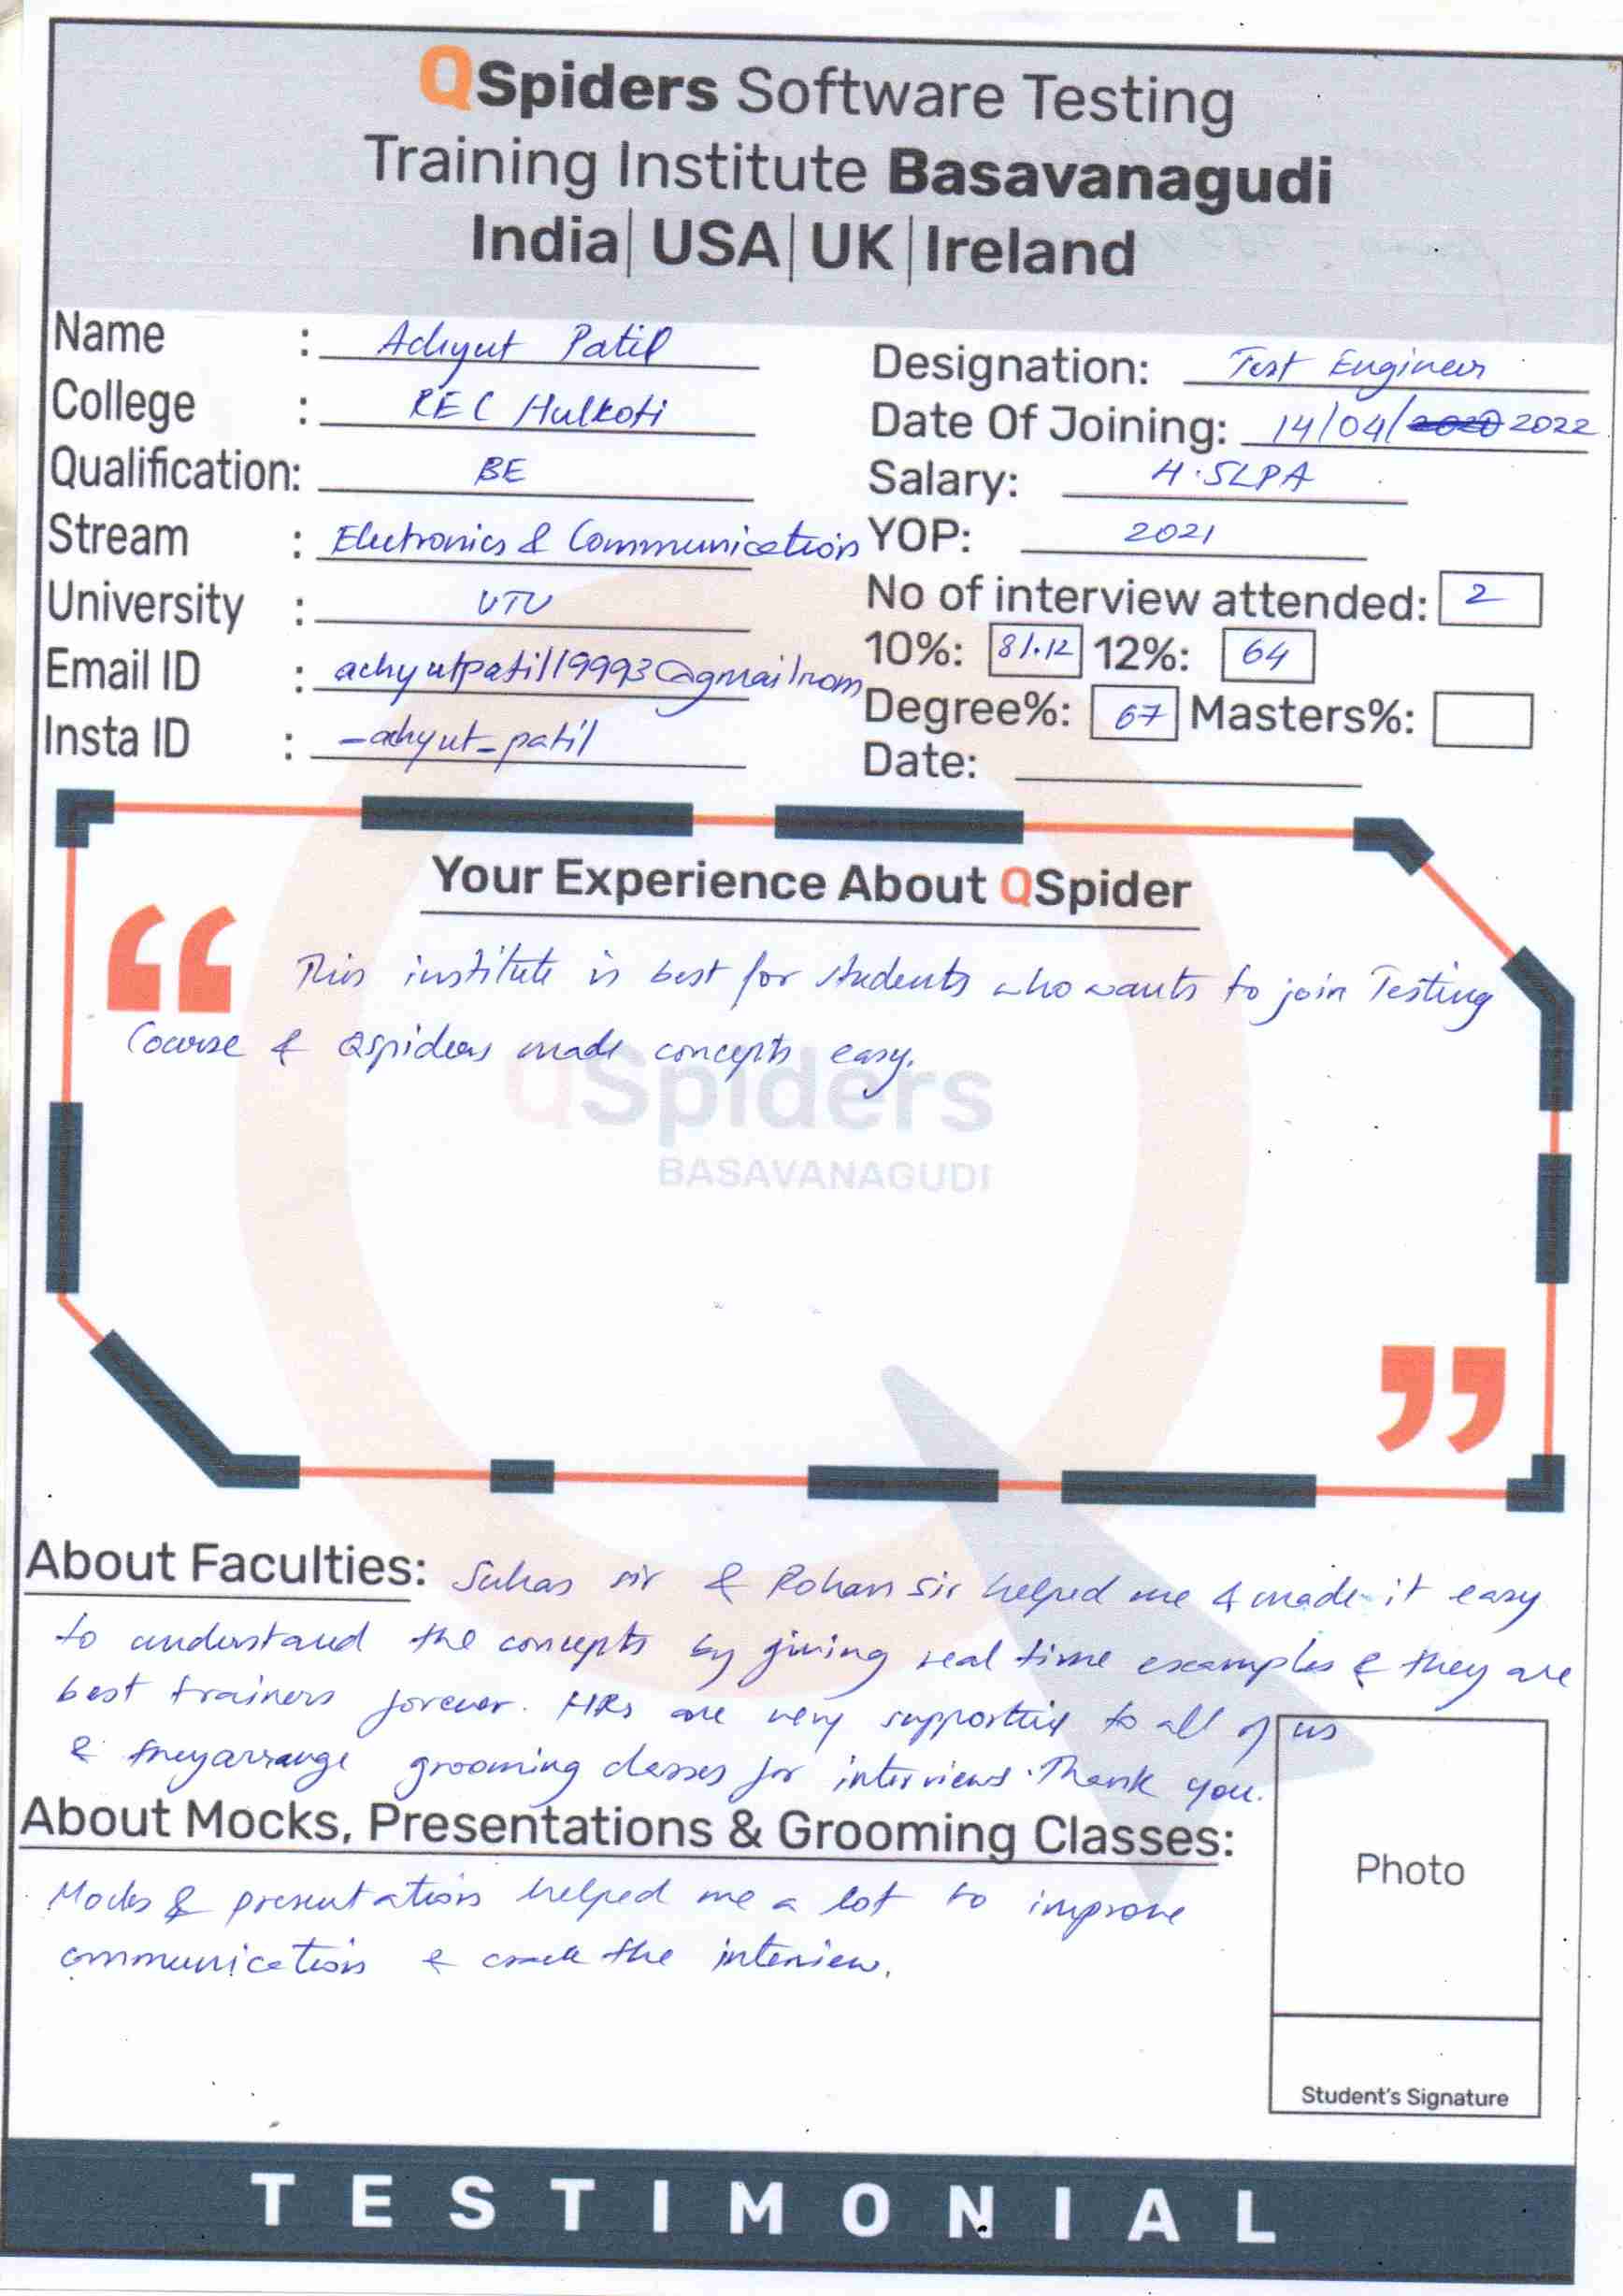 QSpiders Software Testing
Training Institute Basavanagudi
India| USA| UK |Ireland
Name : Achyut Patil
College : REC Hulkoti
Qualification: BE
Stream : Electronics & Communication
University : VTU
Email ID :
Insta ID : _achyut_patil
Designation: Test Engineer
Date Of Joining: 14/04/2022
Salary: 4.5LPA
YOP: 2021
No of interview attended: 2
10%: 81.12 12%: 64
Degree%: 67 Masters%:
Date:
Your Experience About QSpider
“
This institute is best for students who wants to join Testing
Course & Qspiders made concepts easy.
QSpiders
BASAVANAGUDI
”
About Faculties: Suhas sir & Rohan sir helped me & made it easy
to understand the concepts by giving real time examples & they are
best trainers forever. HRs are very supportive to all of us
& they arrange grooming classes for interviews. Thank you.
About Mocks, Presentations & Grooming Classes:
Mocks & presentations helped me a lot to improve
communication & crack the interview.
Photo
Student's Signature
TESTIMONIAL